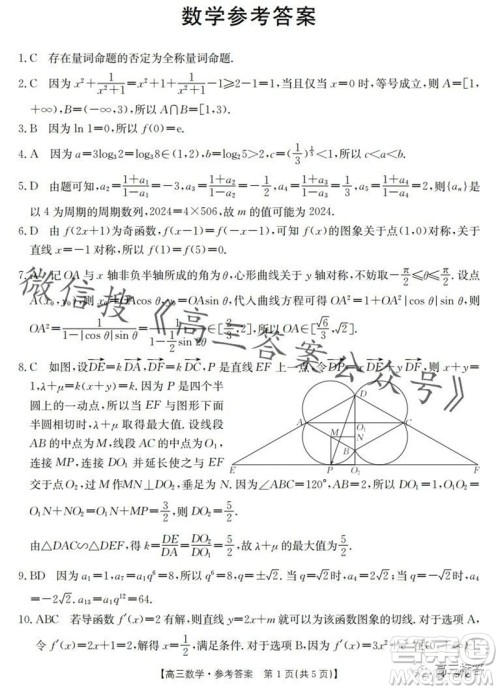 数学参考答案
1. C　存在量词命题的否定为全称量词命题.
2. C　因为 x²+1/(x²+1)=x²+1+1/(x²+1)-1⩾2-1=1,当且仅当 x=0 时,等号成立,所以 A=[1,
+∞),B=(-∞,3],所以 A∩B=[1,3].
3. B　因为 ln 1=0,所以 f(0)=e.
4. A　因为 a=3log₃2=log₃8∈(1,2),b=log₂5>2,c=(1/3)^(1/3)<1,所以 c<a<b.
5. D　由题可知,a₂=(1+a₁)/(1-a₁)=-3,a₃=(1+a₂)/(1-a₂)=-1/2,a₄=(1+a₃)/(1-a₃)=1/3,a₅=(1+a₄)/(1-a₄)=2=a₁,则{aₙ}是
以 4 为周期的周期数列,2024=4×506,故 m 的值可能为 2024.
6. D　由 f(2x+1)为奇函数,f(x-1)=f(-x-1),可知 f(x)的图象关于点(1,0)对称,关于
直线 x=-1 对称,所以 f(3)=f(-5)=0.
7. A　记 OA 与 x 轴非负半轴所成的角为 θ,心形曲线关于 y 轴对称,不妨设-π/2⩽θ⩽π/2.设点
A(x₀,y₀),则 x₀=OA|cos θ|,y₀=OAsin θ,代入曲线方程可得 OA²=1+OA²|cos θ|sin θ,所以
OA²=1/(1-|cos θ|sin θ)=1/(1-1/2 sin 2θ)∈[2/3,2],所以 OA∈[√6/3,√2].
8. C　如图,设DE=kDA,DF=kDC,P 是直线 EF 上一点,令DP=xDE+yDF,则 x+y=
1,λ+μ=k(x+y)=k. 因为点 P 是四个半
圆上的一动点,所以当 EF 与图形下面半
圆相切时,λ+μ 取得最大值. 设线段
AB 的中点为 M,线段 AC 的中点为 O₁,
连接 MP,连接 DO₁ 并延长使之与 EF
交于点 O₂,过 M 作 MN⊥DO₂,垂足为 N. 因为∠ABC=120°,AB=1,所以 DO₁=1,
O₁N=1/4,NO₂=MP=3/2,DO₂=5/2.
由△DAC∽△DEF,得 k=DE/DA=DO₂/DO₁=5/2,故 λ+μ 的最大值为5/2.
E
P
F
D
A
C
M
N
B
O₁
O₂
9. BD　因为 a₁=1,a₇=a₁q⁶=8,所以 q⁶=8,q=±√2. 当 q=√2时,a₄=2√2,当 q=
-√2. a₁₃=a₁q¹²=64.
10. ABC　若导函数 f′(x)=2 有解,则直线 y=2x+m 就可以为该函数图象的切线. 对于选项 A,
令 f′(x)=2x+1=2,解得 x=1/2,满足条件. 对于选项 B,因为 f′(x)=3x²
【高三数学·参考答案　第 1 页(共 5 页)】
微信搜《高三答案公众号》